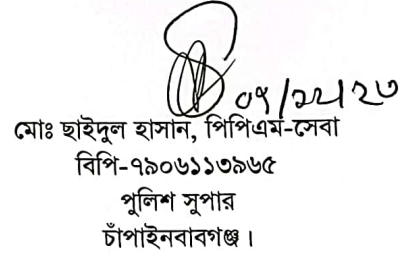 ০৭/১২/২৩
মোঃ ছাইদুল হাসান, পিপিএম-সেবা
বিপি-৭৯০৬১১৩৯৬৫
পুলিশ সুপার
চাঁপাইনবাবগঞ্জ।